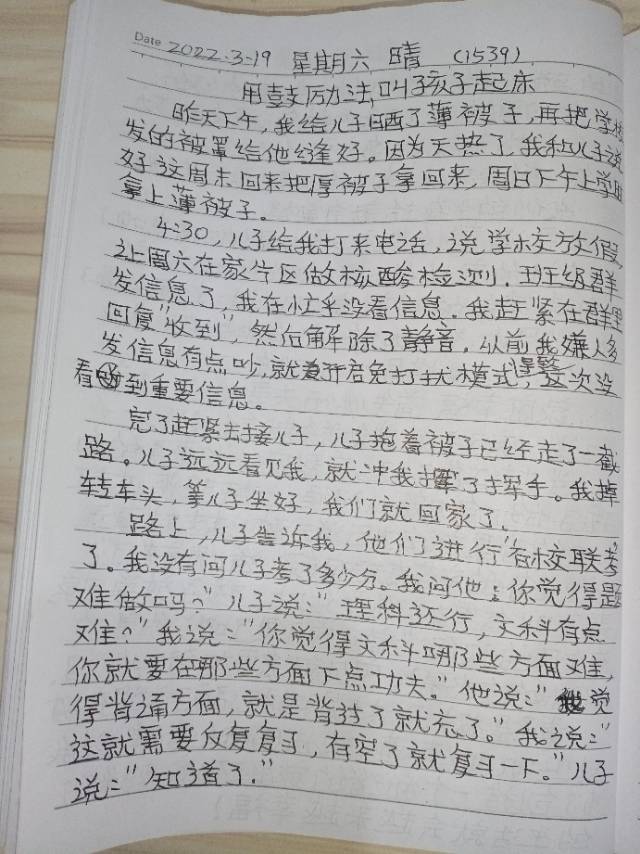 Date 2022.3.19 星期六 晴 (1539)
用鼓励法,叫孩子起床
昨天下午,我给儿子晒了薄被子,再把学校
发的被罩给他缝好。因为天热了,我和儿子说
好这周末回来把厚被子拿回来,周日下午上学时
拿上薄被子。
4:30,儿子给我打来电话,说学校放假,
让周六在家片区做核酸检测,班级群
发信息了,我在忙乎没看信息.我赶紧在群里
回复"收到",然后解除了静音,以前我嫌人多
发信息有点吵,就开启免打扰模式,这次没
看到重要信息。
完了赶紧去接儿子,儿子抱着被子已经走了一截
路。儿子远远看见我,就冲我挥了挥手。我掉
转车头,等儿子坐好,我们就回家了.
路上,儿子告诉我,他们进行"省校联考
了。我没有问儿子考了多少分。我问他:你觉得题
难做吗?"儿子说:"理科还行,文科有点
难?"我说:"你觉得文科哪些方面难,
你就要在那些方面下点功夫。"他说:"觉
得背诵方面,就是背过了就忘了。"我说:"
这就需要反复复习,有空了就复习一下。"儿子
说:"知道了."